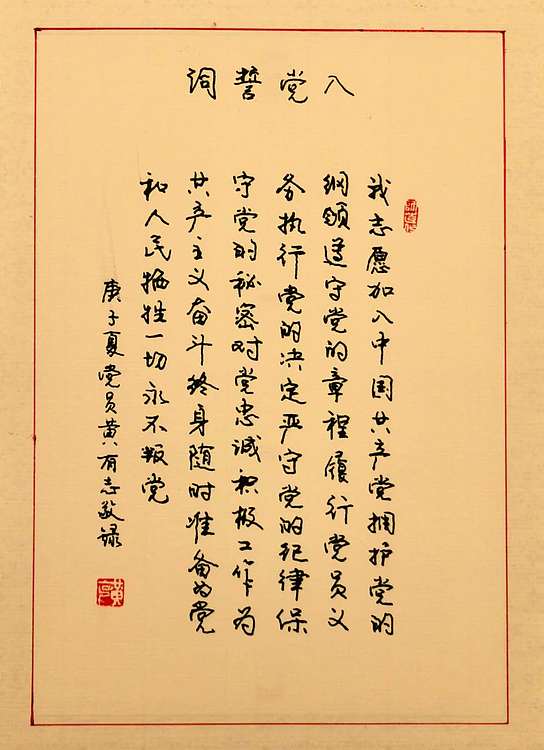 入党誓词
我志愿加入中国共产党拥护党的
纲领遵守党的章程履行党员义
务执行党的决定严守党的纪律保
守党的秘密对党忠诚积极工作为
共产主义奋斗终身随时准备为党
和人民牺牲一切永不叛党
庚子夏党员黄有志敬录